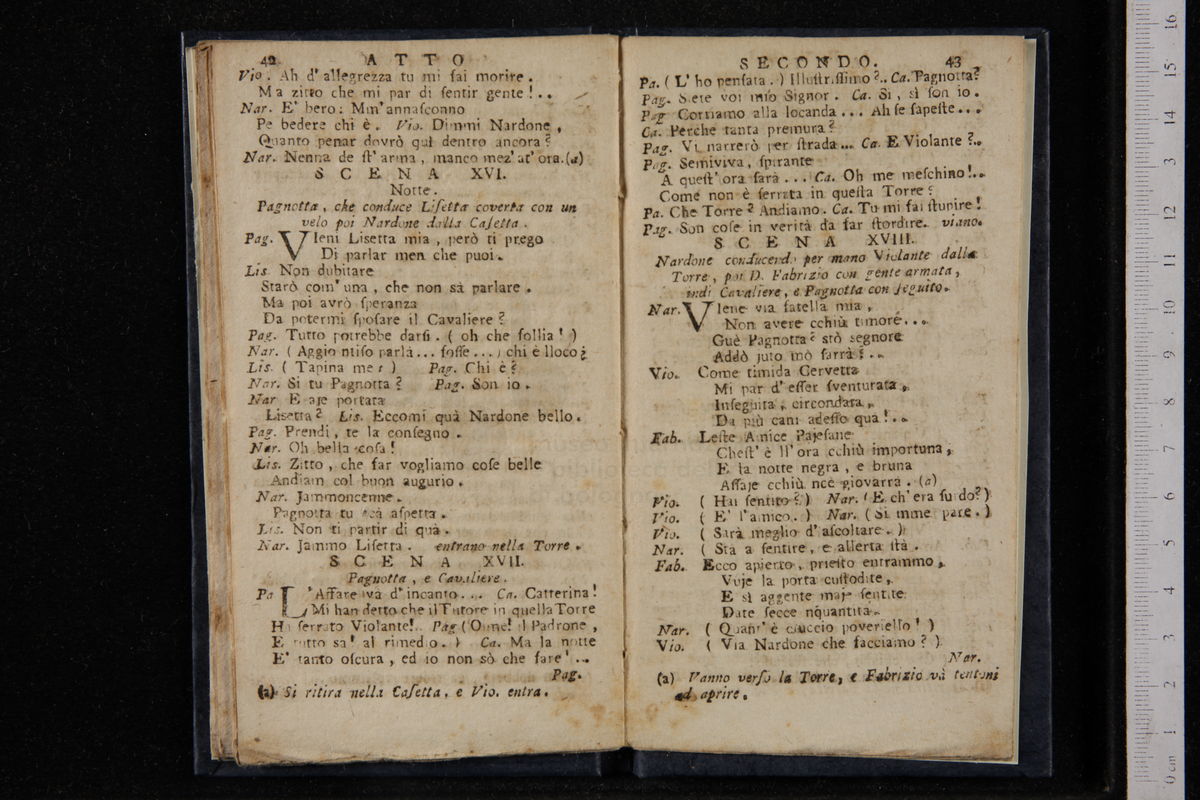 42 ATTO
Vio. Ah d' allegrezza tu mi fai morire.
Ma zitto che mi par di ſentir gente!..
Nar. E' bero: Mm'annaſconno
Pe bedere chi è. Vio. Dimmi Nardone,
Quanto penar dovrò quì dentro ancora?
Nar. Nenna de ſt' arma, manco mez' at' ora.(a)
SCENA XVI.
Notte.
Pagnotta, che conduce Liſetta coverta con un
velo poi Nardone dalla Caſetta.
Pag. VIeni Lisetta mia, però ti prego
Di parlar men che puoi.
Lis. Non dubitare
Starò com' una, che non sà parlare.
Ma poi avrò ſperanza
Da potermi ſpoſare il Cavaliere?
Pag. Tutto potrebbe darſi. ( oh che follia! )
Nar. ( Aggio ntiſo parlà... foſſe...) chi è lloco?
Lis. ( Tapina me! ) Pag. Chi è?
Nar. Si tu Pagnotta? Pag. Son io.
Nar E aje portata
Lisetta? Lis. Eccomi quà Nardone bello.
Pag. Prendi, te la conſegno.
Nar. Oh bella coſa!
Lis. Zitto, che far vogliamo coſe belle
Andiam col buon augurio.
Nar. Jammoncenne.
Pagnotta tu ccà aſpetta.
Lis. Non ti partir di quà.
Nar. Jammo Liſetta. entrano nella Torre.
SCENA XVII.
Pagnotta, e Cavaliere.
Pa L'Affare và d'incanto... Ca. Catterina!
Mi han detto che il Tutore in quella Torre
Ha ſerrato Violante!.. Pag (Oimè! il Padrone,
E tutto sa! al rimedio.) Ca. Ma la notte
E' tanto oſcura, ed io non sò che fare!..
Pag.
(a) Si ritira nella Caſetta, e Vio. entra.
SECONDO. 43
Pa. ( L' ho penſata.) Illuſtriſſimo?.. Ca. Pagnotta?
Pag. Siete voi mio Signor. Ca. Si, sì ſon io.
Pag Corriamo alla locanda... Ah ſe ſapeſte...
Ca. Perche tanta premura?
Pag. Vi narrerò per ſtrada... Ca. E Violante?..
Pag. Semiviva, ſpirante
A queſt' ora ſarà... Ca. Oh me meſchino!..
Come non è ſerrata in queſta Torre?
Pa. Che Torre? Andiamo. Ca. Tu mi fai ſtupire!
Pag. Son coſe in verità da far ſtordire. viano.
SCENA XVIII.
Nardone conducendo per mano Violante dalla
Torre, poi D. Fabrizio con gente armata,
indi Cavaliere, e Pagnotta con ſeguito.
Nar. VIene via fatella mia,
Non avere cchiù timore...
Guè Pagnotta? stò segnore
Addò juto mò ſarrà?..
Vio. Come timida Cervetta
Mi par d' eſſer ſventurata,
Inſeguita, circondata,
Da più cani adeſſo qua!..
Fab. Leſte Amice Pajeſane
Cheſt' è ll' ora cchiù importuna,
E la notte negra, e bruna
Aſſaje cchiù nce giovarrà. (a)
Vio. ( Hai ſentito?) Nar. (E ch' era ſurdo?)
Vio. ( E' l'amico.) Nar. (Si mme pare.)
Vio. ( Sarà meglio d' aſcoltare.)
Nar. ( Sta a ſentire, e allerta ſtà.
Fab. Ecco apierto, prieſto entrammo,
Vuje la porta cuſtodite,
E sì aggente maje ſentite
Date ſecce nquantità.
Nar. ( Quant' è ciuccio poveriello! )
Vio. ( Via Nardone che facciamo? )
Nar.
(a) Vanno verſo la Torre, e Fabrizio và tentoni
ad aprire.